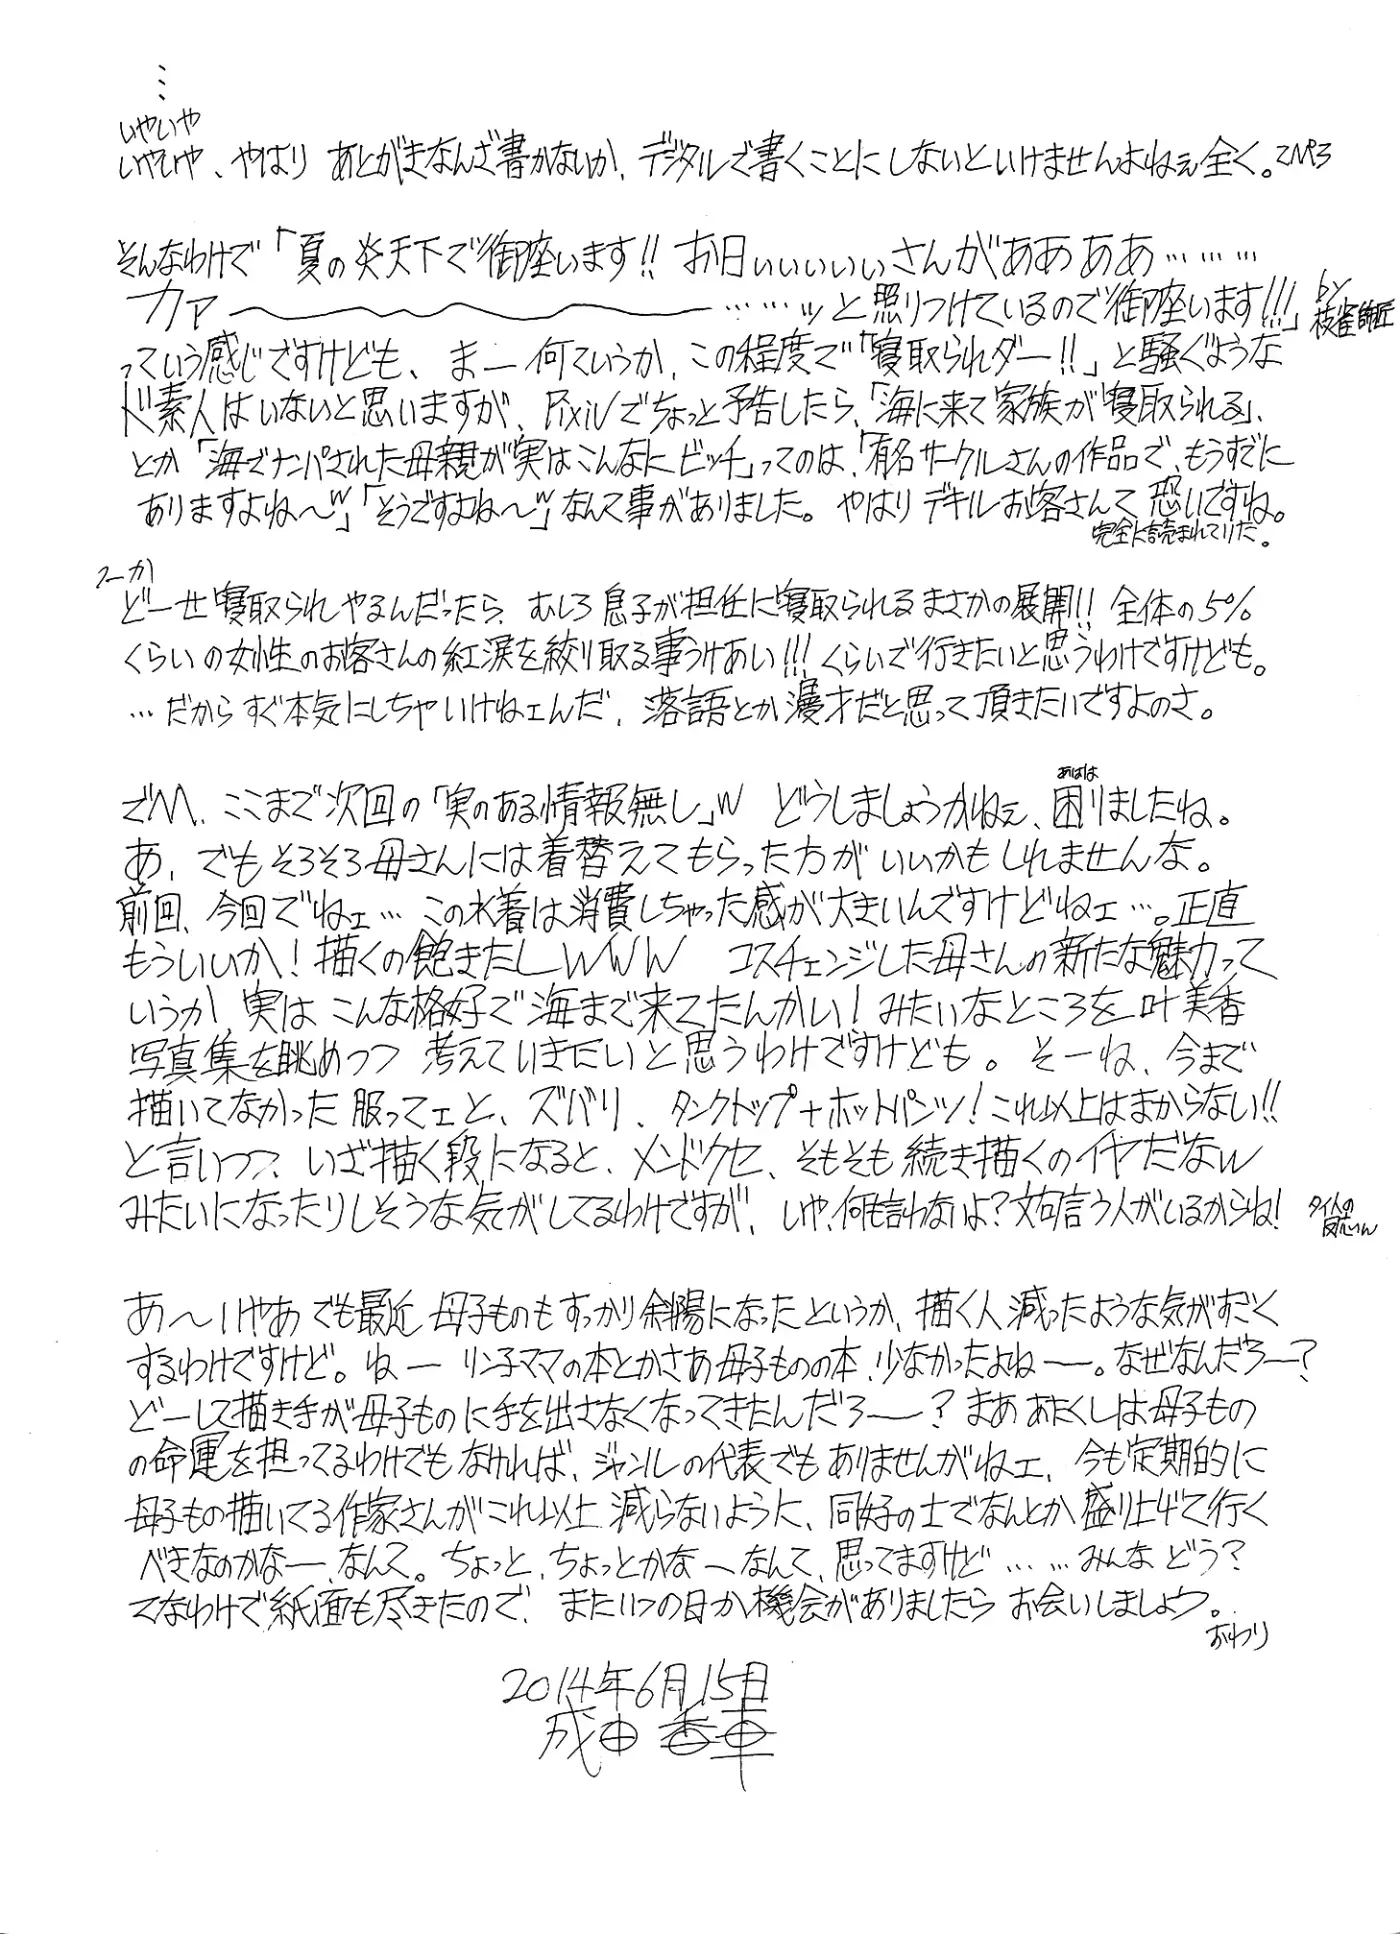 …
いやいや
いやいや、やはり あとがきなんざ書かないか、デジタルで書くことにしないといけませんよねぇ全く。
そんなわけで「夏の炎天下で御座います!! お日ぃぃぃぃぃさんがああああ………
カァ〜〜〜〜………ッと照りつけているので御座います!!!」by枝雀師匠
っていう感じですけども、まー何ていうか、この程度で「寝取られダー!!」と騒ぐような
ド素人はいないと思いますが、Pixivでちょっと予告したら、「海に来て家族が寝取られる」、
とか「海でナンパされた母親が実はこんなにビッチ」ってのは、「有名サークルさんの作品で、もうすでに
ありますよね〜w」「そうですよね〜w」なんて事がありました。やはりデキルお客さんて恐いですね。
完全に読まれていた。
つーか
どーせ寝取られやるんだったら、むしろ息子が担任に寝取られるまさかの展開!! 全体の5%
くらいの女性のお客さんの紅涙を絞り取る事うけあい!!!くらいで行きたいと思うわけですけども。
…だからすぐ本気にしちゃいけねェんだ、落語とか漫才だと思って頂きたいですよのさ。
でM、ここまで次回の「実のある情報無し」w どうしましょうかねぇ、困りましたね。
あはは
あ、でもそろそろ母さんには着替えてもらった方がいいかもしれませんな。
前回、今回でねェ…この水着は消費しちゃった感が大きいんですけどねェ…。正直
もういいか!描くの飽きたしwww コスチェンジした母さんの新たな魅力って
いうか、実はこんな格好で海まで来てたんかい!みたいなところを叶美香
写真集を眺めつつ 考えていきたいと思うわけですけども。そーね、今まで
描いてなかった服ってェと、ズバリ、タンクトップ+ホットパンツ!これ以上はまからない!!
と言いつつ、いざ描く段になると、メンドクセ、そもそも続き描くのイヤだなw
みたいになったりしそうな気がしてるわけですが、いや、何も言わないよ?文句言う人がいるからね!
タイ人の
反応いん
あ〜いやあでも最近 母子ものもすっかり斜陽になったというか、描く人減ったような気がすごく
するわけですけど。ねー リン子ママの本とかさあ母子ものの本、少なかったよねー。なぜなんだろー?
どーして描き手が母子ものに手を出さなくなってきたんだろー?まああたくしは母子もの
の命運を担ってるわけでもなければ、ジャンルの代表でもありませんがねェ、今も定期的に
母子もの描いてる作家さんがこれ以上減らないように、同好の士でなんとか盛り上げて行く
べきなのかなー、なんて。ちょっと、ちょっとかなーなんて、思ってますけど……みんなどう?
てなわけで紙面も尽きたので、またいつの日か機会がありましたらお会いしましょう。
おわり
2014年6月15日
成田香車